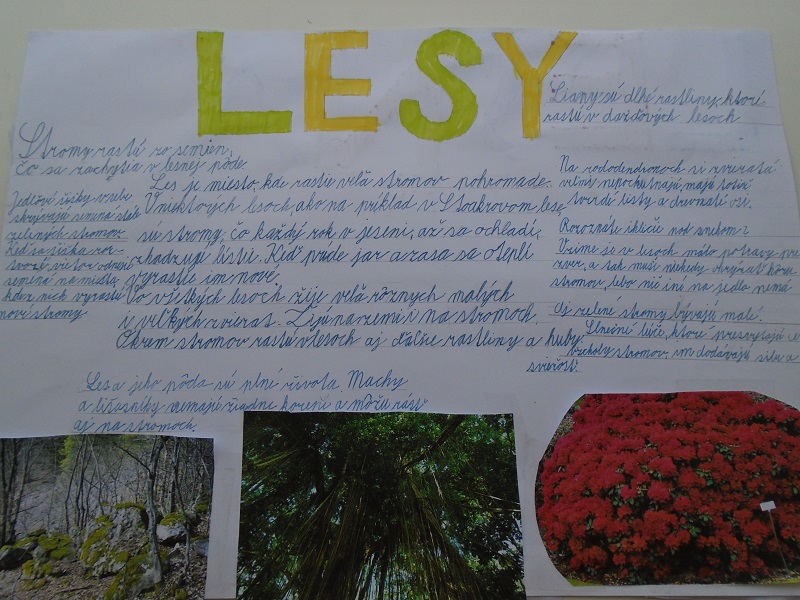 LESY
Stromy rastú zo semien,
čo sa zachytia v lesnej pôde
Jedľové šišky v sebe
skrývajú semená stále
zelených stromov.
Keď sa šiška roz-
tvorí vietor odnesie
semená na miesta,
kde z nich vyrastú
nové stromy
Les je miesto, kde rastie veľa stromov pohromade.
V niektorých lesoch, ako na príklad v Stoakrovom lese
sú stromy, čo každý rok v jeseni, až sa ochladí,
zhadzujú lístie. Keď príde jar a zasa sa oteplí
vyrastie im nové.
Vo všetkých lesoch žije veľa rôznych malých
i veľkých zvierat. Žijú na zemi i na stromoch.
Okrem stromov rastú v lesoch aj ďalšie rastliny a huby.
Les a jeho pôda sú plné života. Machy
a lišajníky nemajú žiadne korene a môžu rásť
aj na stromoch.
Liany sú dlhé rastliny, ktoré
rastú v dažďových lesoch
Na rododendronoch si zvieratá
nepochutnajú, majú totiž
tvrdé listy a drevnaté
Poroznáte ihličie pod snehom?
V zime je v lesoch málo potravy pre
zver, a tak musí niekedy ohrýzať kôru
stromov, lebo nič iné na jedlo nemá
Aj zelené stromy bývajú malé.
Slnečné lúče, ktoré presvitajú cez
vrcholy stromov, im dodávajú silu a
sviežosť.